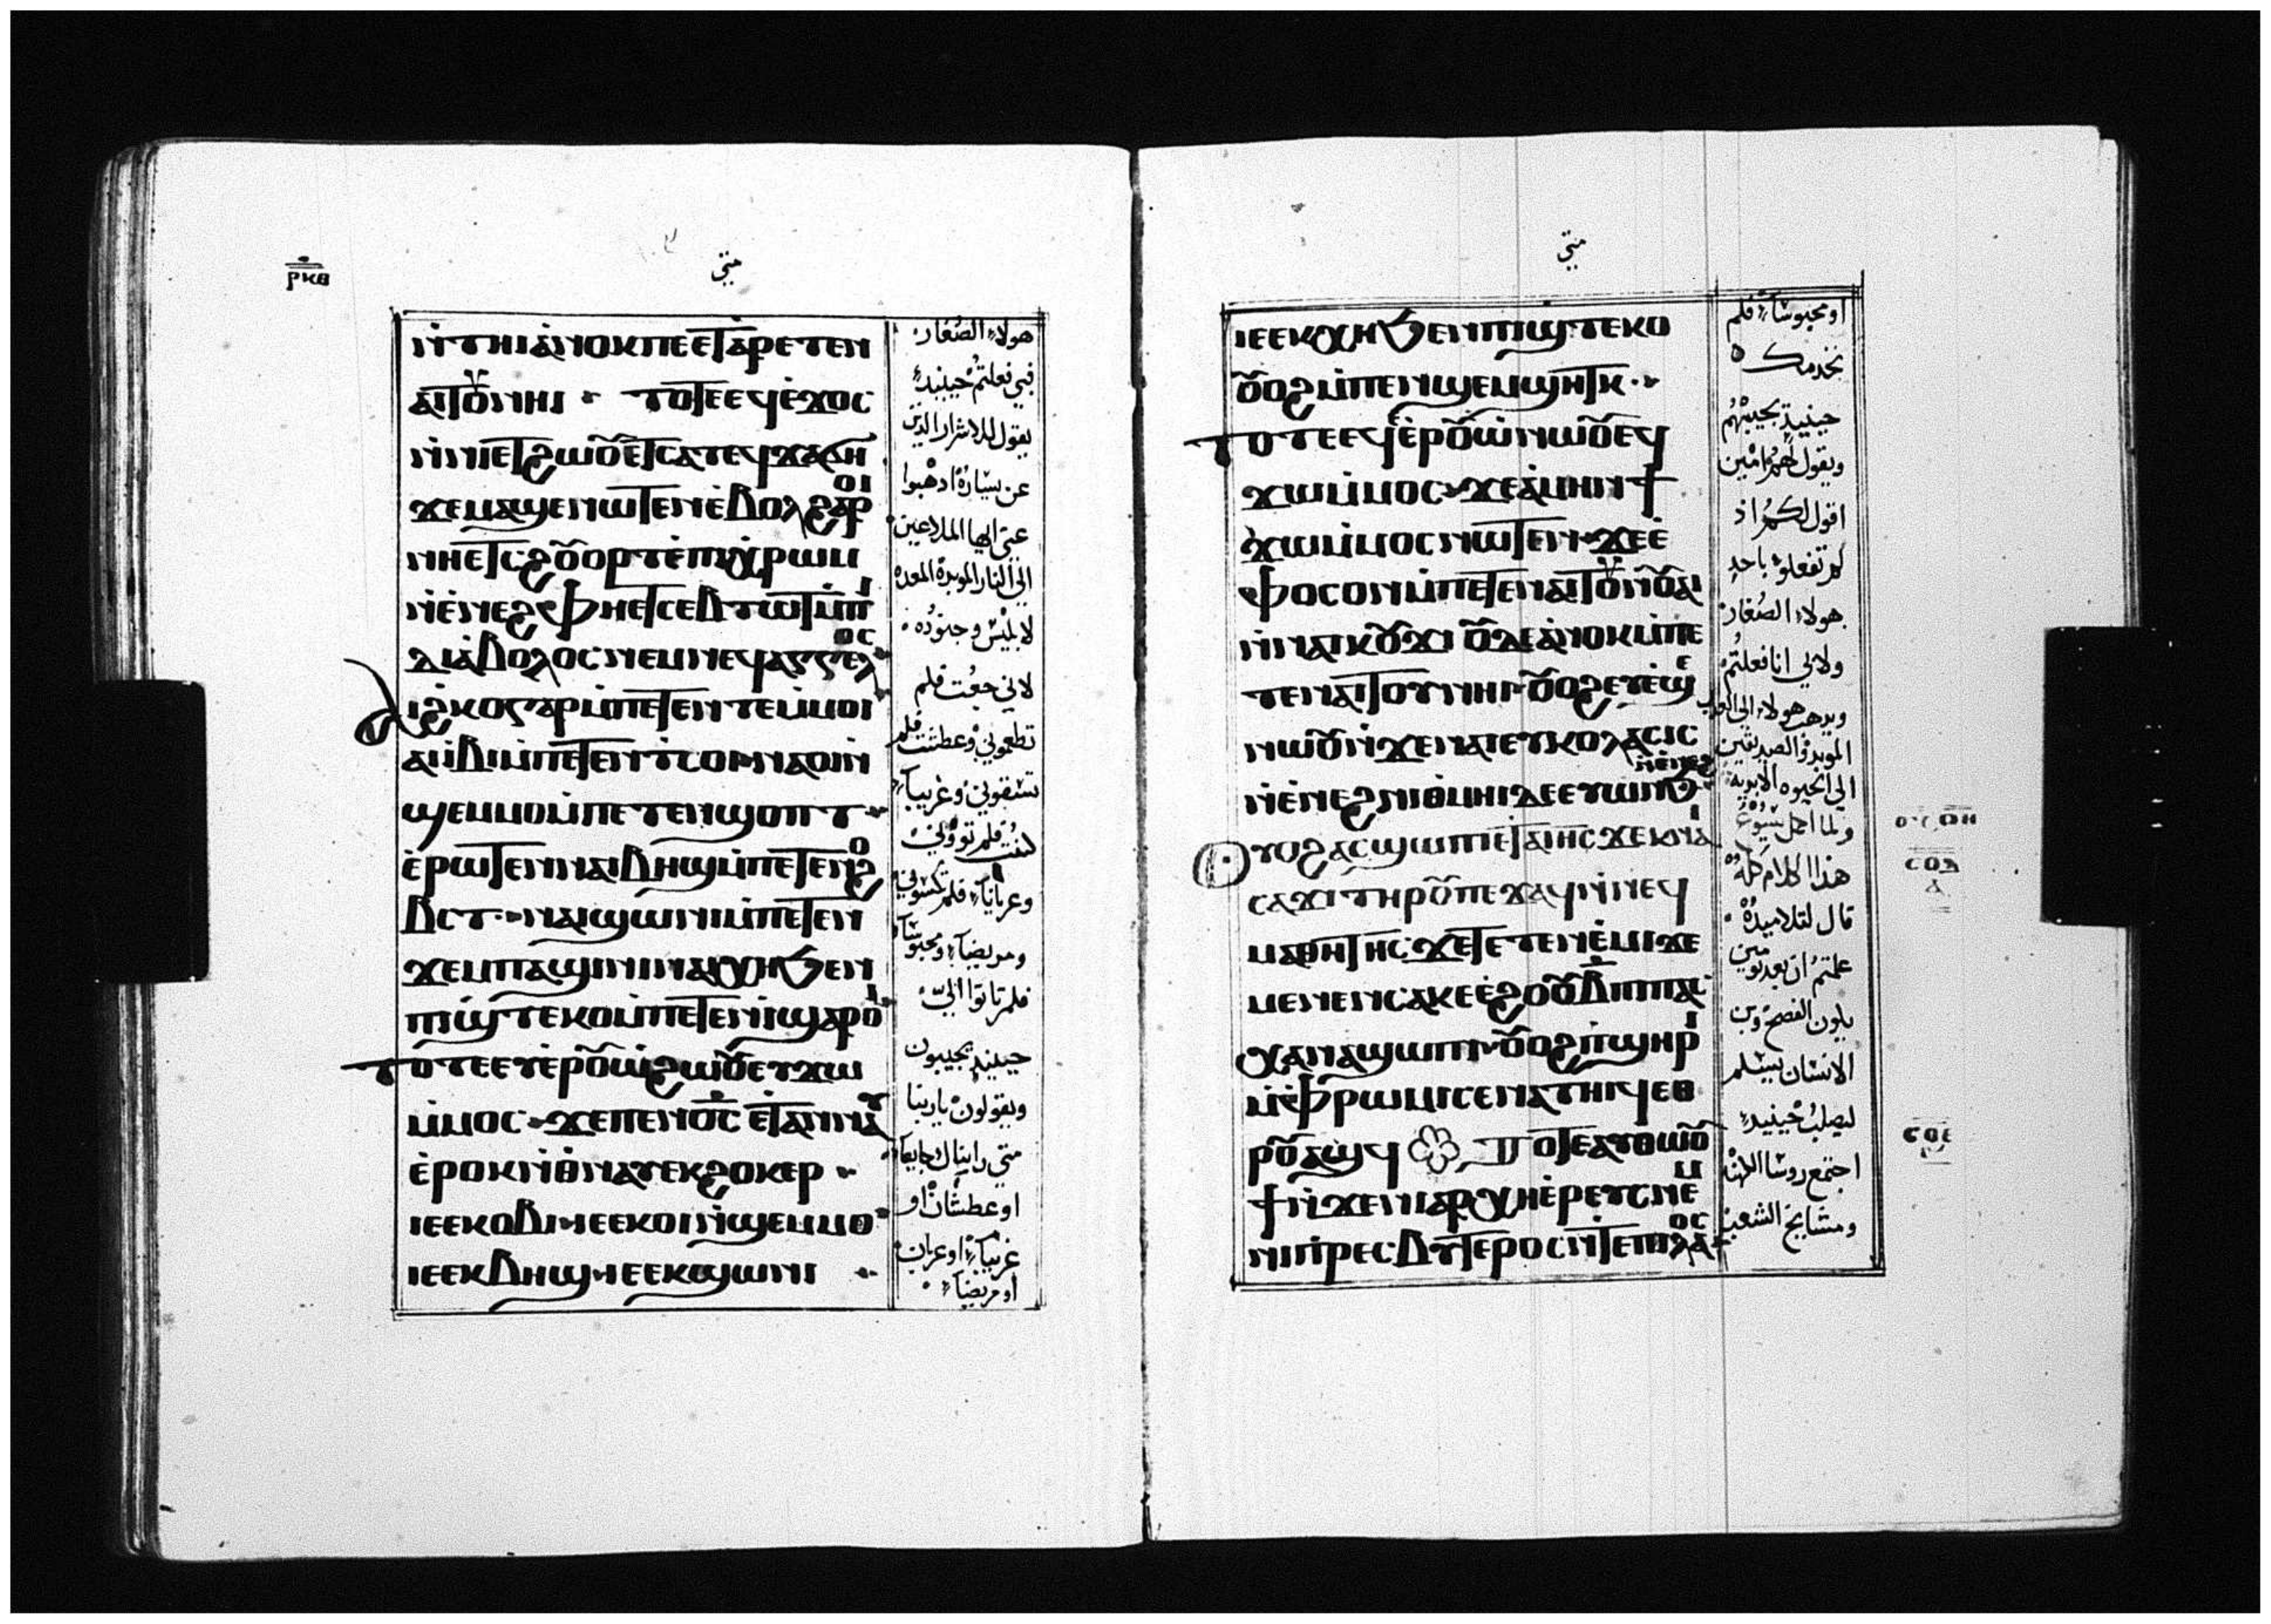 ⲣⲕⲃ
متي
ⲛ̀ⲧⲏⲓⲁⲛⲟⲕⲡⲉⲉⲧⲁⲣⲉⲧⲉⲛ
ⲁⲓⲧⲟⲩⲛⲏⲓ ⲧⲟⲧⲉⲉϥⲉ̀ϫⲟⲥ
ⲛ̀ⲛⲓⲉⲧϩⲱⲟⲩⲉⲧⲥⲁⲧⲉϥϫⲁϭⲏ
ϫⲉⲙⲁϣⲉⲛⲱⲧⲉⲛⲉ̀ⲃⲟⲗϩⲁⲣⲟⲓ
ⲛⲏⲉⲧⲥϩⲟⲩⲟⲣⲧⲉ̀ⲡⲓⲭⲣⲱⲙ
ⲛ̀ⲉ̀ⲛⲉϩⲫⲏⲉⲧⲥⲉⲃⲧⲱⲧⲙ̀ⲡⲓ
ⲇⲓⲁ̀ⲃⲟⲗⲟⲥⲛⲉⲙⲛⲉϥⲁⲅⲅⲉⲗⲟⲥ
ⲁⲓϩⲕⲟⲅⲁⲣⲙ̀ⲡⲉⲧⲉⲛⲧⲉⲙⲙⲟⲓ
ⲁⲓⲓ̀ⲃⲓⲙ̀ⲡⲉⲧⲉⲛⲧⲥⲟⲓⲛⲁⲟⲓⲛ̀
ϣⲉⲙⲙⲟⲙ̀ⲡⲉⲧⲉⲛϣⲟⲡⲧ
ⲉ̀ⲣⲱⲧⲉⲛⲛⲁⲓⲃⲏϣⲙ̀ⲡⲉⲧⲉⲛϩⲟ
ⲃⲥⲧ ⲛⲁⲓϣⲱⲛⲓⲙ̀ⲡⲉⲧⲉⲛ
ϫⲉⲙⲡⲁϣⲓⲛⲓⲛⲁⲓⲭⲏϧⲉⲛ
ⲡⲓϣ̀ⲧⲉⲕⲟⲙ̀ⲡⲉⲧⲉⲛⲓ̀ϣⲁⲣⲟⲓ
ⲧⲟⲧⲉⲉⲩⲉ̀ⲣⲟⲩⲱ̀ϩⲱⲟⲩⲉⲩϫⲱ
ⲙ̀ⲙⲟⲥ ϫⲉⲡⲉⲛⲟ̅ⲥ̅ ⲉⲧⲁⲛⲛⲁⲩ
ⲉ̀ⲣⲟⲕⲛ̀ⲑⲛⲁⲩⲉⲕϩⲟⲕⲉⲣ
ⲓⲉⲉⲕⲟⲃⲓⲓⲉⲉⲕⲟⲓⲛ̀ϣⲉⲙⲙⲟ
ⲓⲉⲉⲕⲃⲏϣⲓⲉⲉⲕϣⲱⲛⲓ
هولاء الصغار
فبي فعلتم حينيذ
يقول للاشرار الذين
عن يساره اذهبوا
عني ايها الملاعين
الي النار الموبدة المعده
لابليس وجنوده
لاني جعت فلم
تطعموني وعطشت فلم
تسقوني وغريبا
كنت فلم توووني
وعريانا فلم تكسوني
ومريضا ومحبوسا
فلم تاتوا اليّ
حينيذ يجيبون
ويقولون ياربنا
متي رايناك جايعا
او عطشان او
غريبا او عريان
او مريضا
متي
ⲓⲉⲉⲕⲭⲏϧⲉⲛⲡⲓϣⲧⲉⲕⲟ
ⲟⲩⲟϩⲙ̀ⲡⲉⲛϣⲉⲙϣⲏⲧⲕ
ⲧⲟⲧⲉⲉϥⲉ̀ⲣⲟⲩⲱ̀ⲛⲱⲟⲩⲉϥ
ϫⲱⲙ̀ⲙⲟⲥ ϫⲉⲁ̀ⲙⲏⲛϯ
ϫⲱⲙ̀ⲙⲟⲥⲛⲱⲧⲉⲛ ϫⲉⲉ̀
ⲫⲟⲥⲟⲛⲙ̀ⲡⲉⲧⲉⲛⲁⲓⲧⲟⲩⲛ̀ⲟⲩⲁⲓ
ⲛ̀ⲛⲁⲓⲕⲟⲩϫⲓ ⲟⲩⲇⲉⲁ̀ⲛⲟⲕⲙ̀ⲡⲉ
ⲧⲉⲛⲁⲓⲧⲟⲩⲛⲏⲓ ⲟⲩⲟϩⲉⲩⲉ̀ϣⲉ
ⲛⲱⲟⲩⲛ̀ϫⲉⲛⲁⲓⲉⲩⲕⲟⲗⲁⲥⲓⲥ
ⲛ̀ⲉ̀ⲛⲉϩⲛⲓⲑⲙⲏⲓⲇⲉⲉⲩⲱⲛϧ ⲛ̀ⲉ̀ⲛⲉϩ
ⲟⲩⲟϩⲁⲥϣⲱⲡⲓⲉⲧⲁⲓⲏⲥϫⲉⲕⲛⲁⲓ
ⲥⲁϫⲓⲧⲏⲣⲟⲩⲡⲉϫⲁϥⲛ̀ⲛⲉϥ
ⲙⲁⲑⲏⲧⲏⲥ ϫⲉⲧⲉⲧⲉⲛⲉ̀ⲙⲓϫⲉ
ⲙⲉⲛⲉⲛⲥⲁⲕⲉⲉ̀ϩⲟⲟⲩⲃ̅ⲡⲓⲡⲁⲥ
ⲭⲁⲛⲁϣⲱⲡⲓ ⲟⲩⲟϩⲡϣⲏⲣⲓ
ⲙ̀ⲫⲣⲱⲙⲓⲥⲉⲛⲁⲧⲏⲓϥⲉⲑ
ⲣⲟⲩⲁϣϥ ⲧⲟⲧⲉⲁⲩⲑⲱⲟⲩ
ϯⲛ̀ϫⲉⲛⲓⲁⲣⲭⲏⲉ̀ⲣⲉⲩⲥⲛⲉⲙ
ⲛⲓⲡⲣⲉⲥⲃⲩⲧⲉⲣⲟⲥⲛ̀ⲧⲉⲡⲓⲗⲁⲟⲥ
او محبوسا فلم
نخدمك
حينيذ يجيبهم
ويقول لهم امين
اقول لكم اذ
لم تفعلوه باحد
هولاء الصغار
ولا لي انا فعلتم
ويذهب هولاء الي العذاب
الموبد والصديقين
الي الحيوه الابدية
ولما اكمل يسوع
هذا الكلام كله
قال لتلاميذه
علمتم ان بعد يومين
يكون الفصح وبن
الانسان يسلم
ليصلب حينيذ
اجتمع روسا الكهنه
ومشايخ الشعب
ⲥⲟⲇ
ⲥⲟⲉ